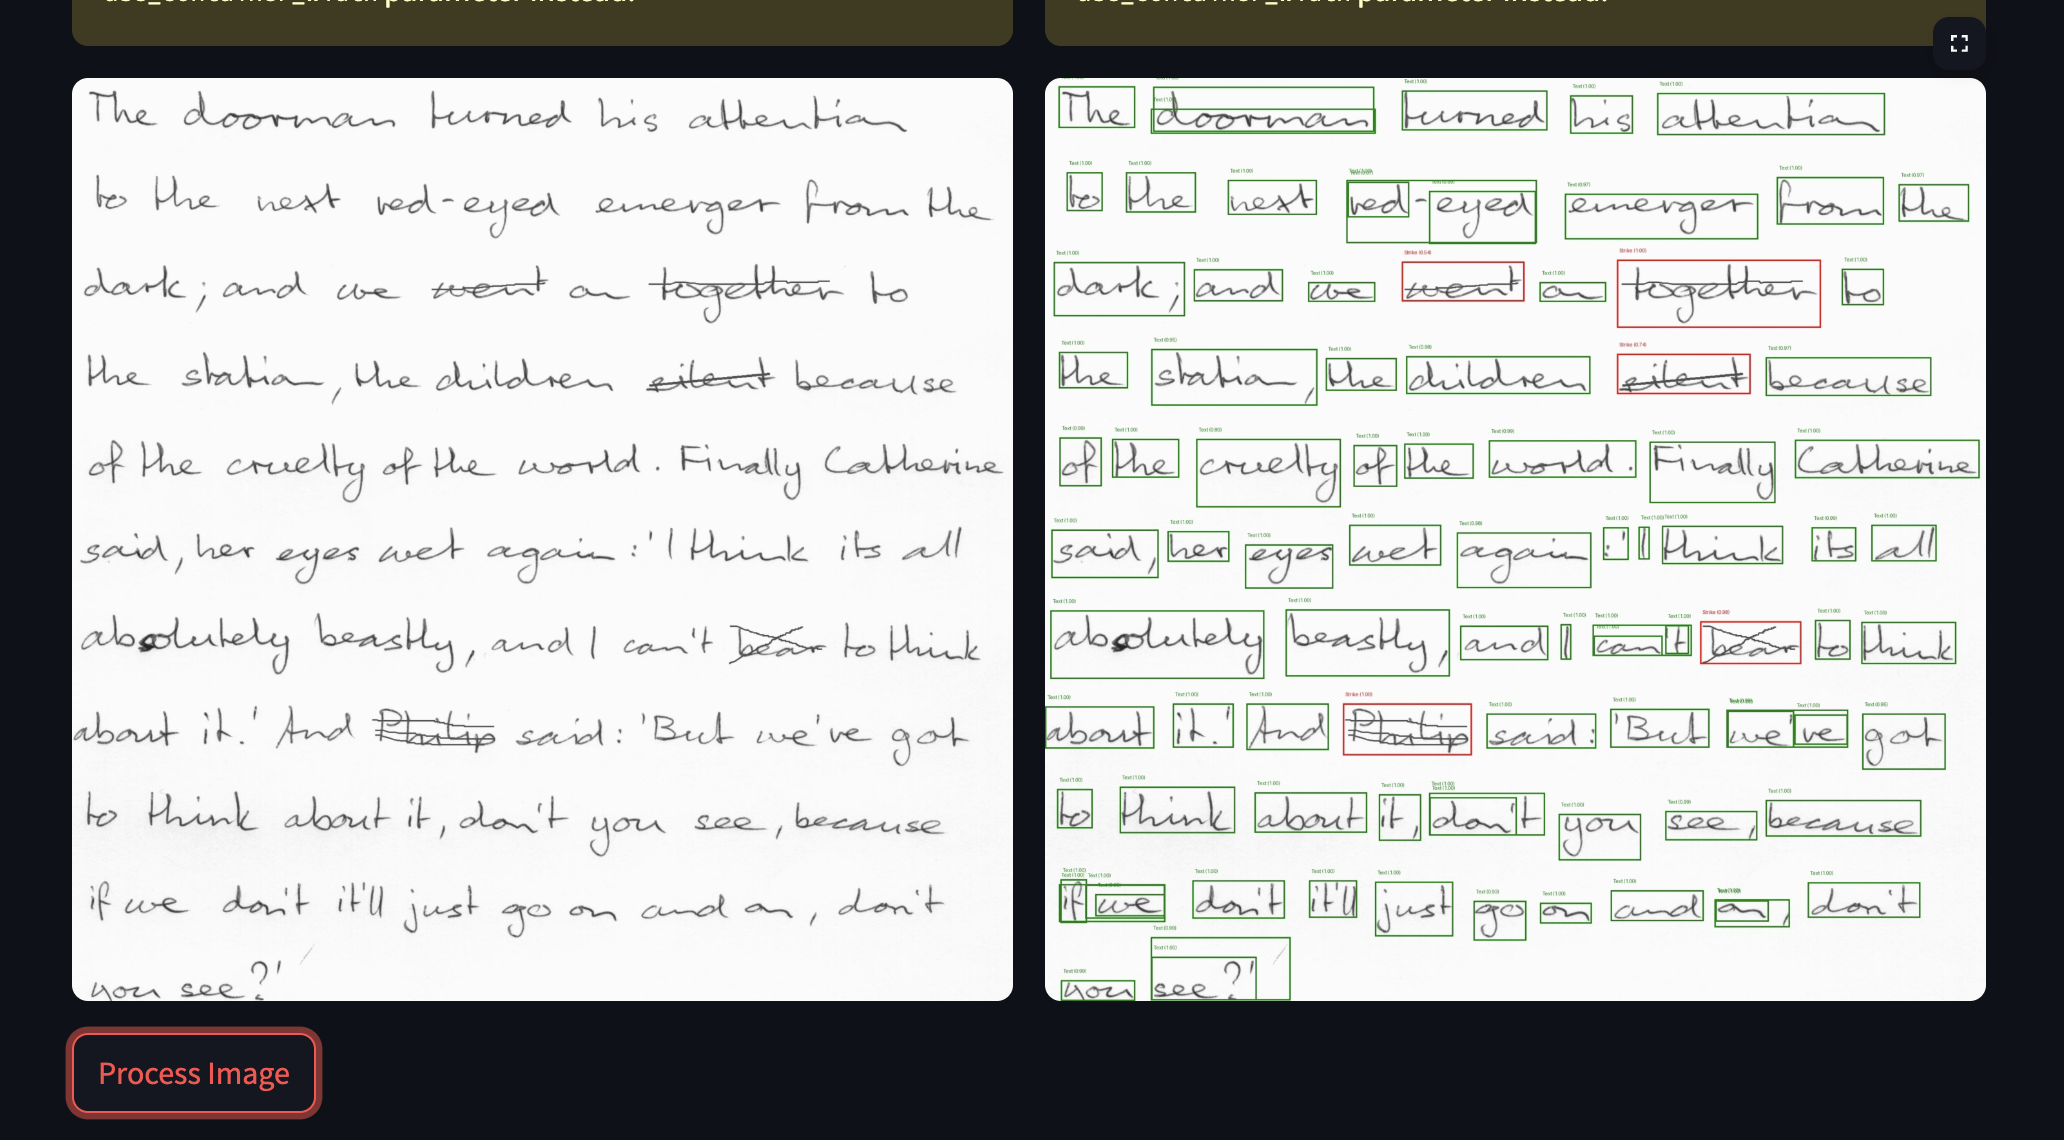 The doorman turned his attention
to the next red-eyed emerger from the
dark; and we went on together to
the station, the children silent because
of the cruelty of the world. Finally Catherine
said, her eyes wet again: 'I think its all
absolutely beastly, and I can't bear to think
about it.' And Philip said: 'But we've got
to think about it, don't you see, because
if we don't it'll just go on and on, don't
you see?'
The doorman turned his attention
to the next red-eyed emerger from the
dark; and we went on together to
the station, the children silent because
of the cruelty of the world. Finally Catherine
said, her eyes wet again :' I think its all
absolutely beastly, and I can't bear to think
about it.' And Philip said: 'But we've got
to think about it, don't you see, because
if we don't it'll just go on and on, don't
you see?'
Process Image